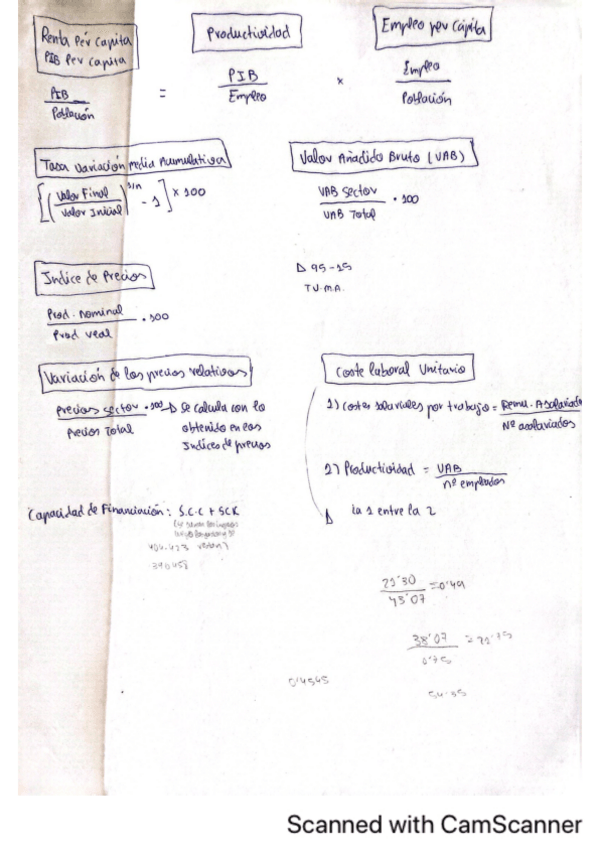 Renta Pér Capita
PIB Per Capita
Productividad
Empleo per Cápita
PIB
Población
=
PIB
Empleo
×
Empleo
Población
Tasa Variación Media Acumulativa
[(Valor Final / Valor Inicial)^1/n - 1] × 100
Valor Añadido Bruto (VAB)
VAB Sector
VAB Total
· 100
95-15
T.V.M.A.
Indice de Precios
Prod. nominal
Prod real
· 100
Variación de los precios relativos
Precios sector · 100
Precios Total
Se calcula con lo
obtenido en los
Indices de precios
Coste laboral Unitario
1) Costes salariales por trabajo = Remu. Asalariado
Nº asalariados
2) Productividad = VAB
nº empleados
La 1 entre la 2
Capacidad de Financiación: S.C.C + SCK
404.423
390458
21'30
43'07
=0'49
38'07
0'75
0'4545